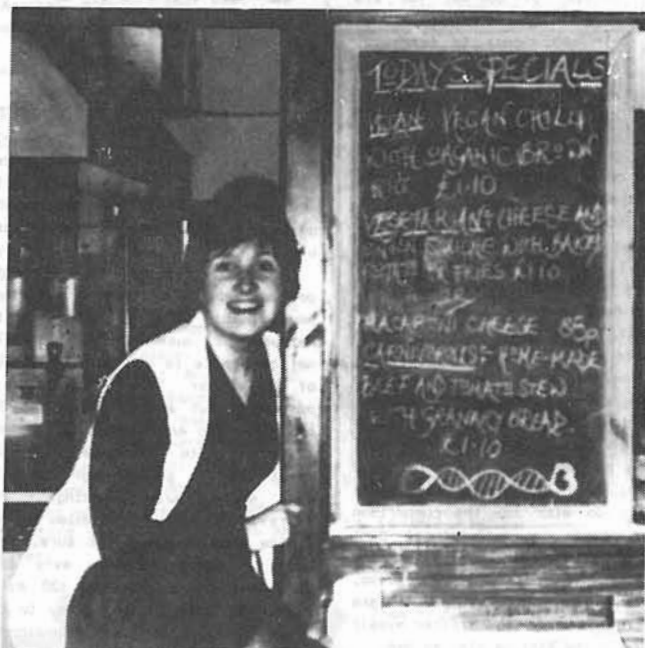 TODAYS SPECIALS
VEGAN: VEGAN CHILLI
WITH ORGANIC BROWN
£1.10
VEGETARIAN: CHEESE AND
WITH BAKED
FRIES £1.10
MACARONI CHEESE 85p
CARNIVOROUS: HOME-MADE
BEEF AND TOMATO STEW
WITH GRANARY BREAD.
£1.10